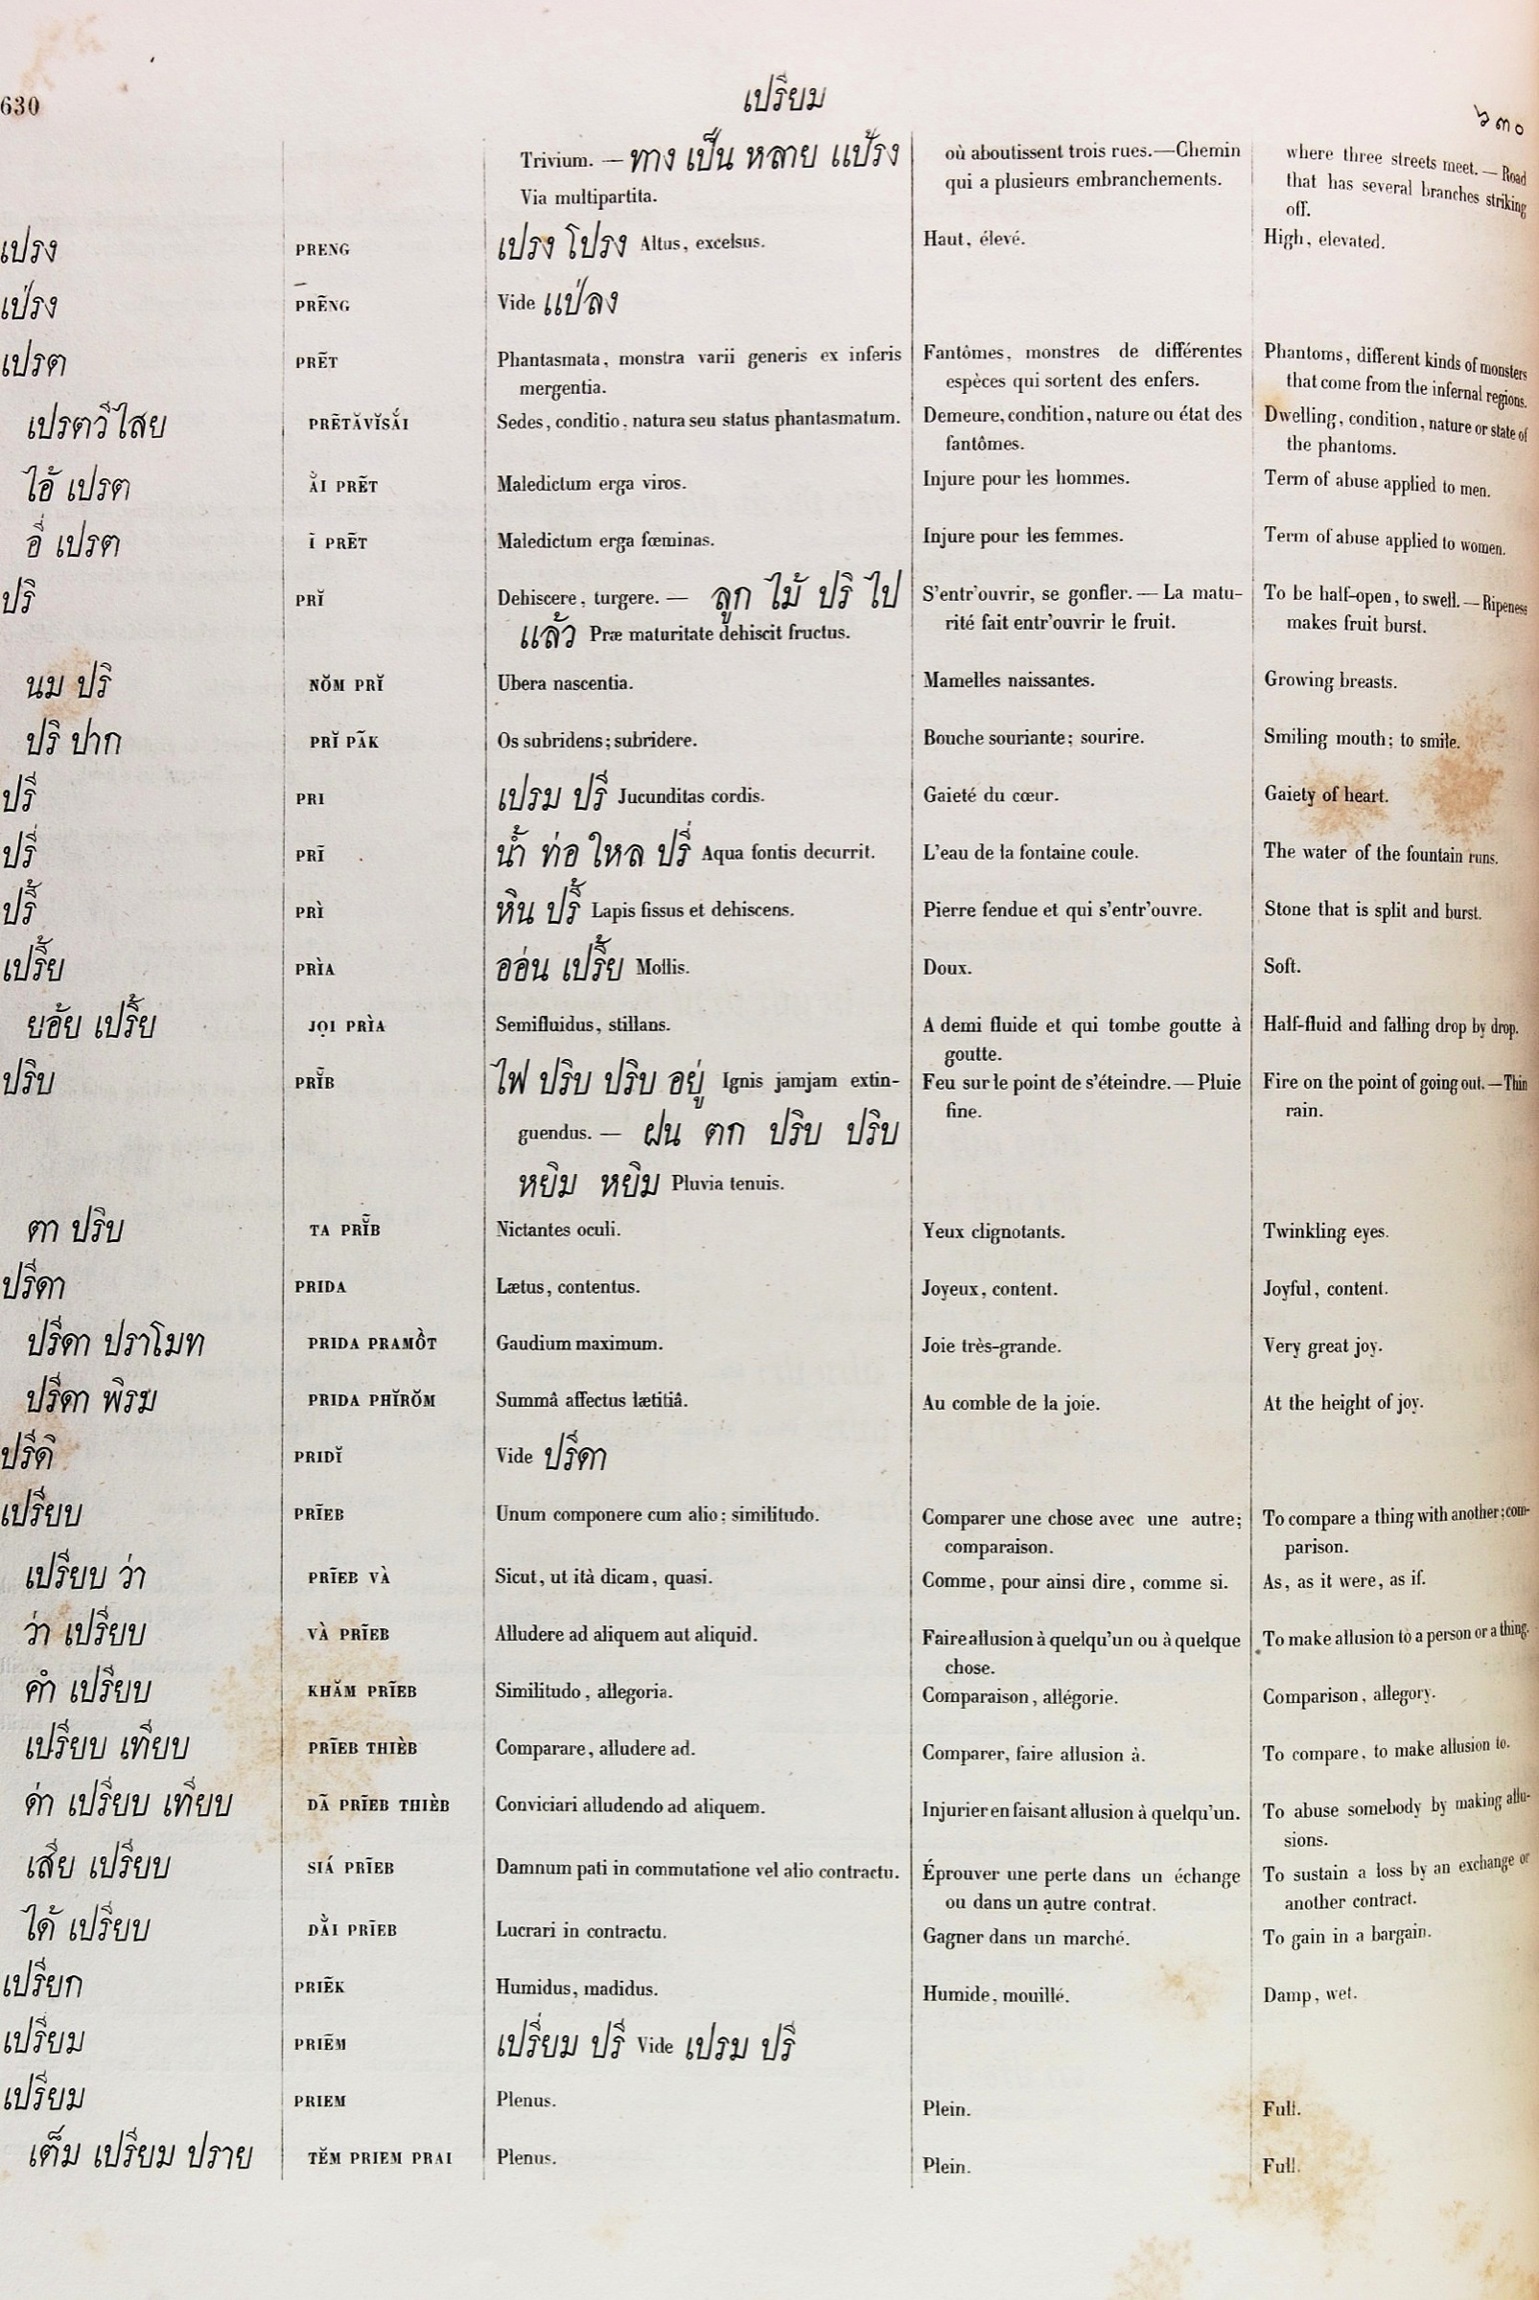 630
เปรียม
๖๓๐
Trivium. — ทาง เป็น หลาย แป้รง
Via multipartita.
où aboutissent trois rues.—Chemin
qui a plusieurs embranchements.
where three streets meet. — Road
that has several branches striking
off.
เปรง PRENG เปรง โปรง Altus, excelsus. Haut, élevé. High, elevated.
เป่รง PRẼNG Vide แป่ลง
เปรต PRẼT Phantasmata, monstra varii generis ex inferis Fantômes, monstres de différentes Phantoms, different kinds of monsters
mergentia. espèces qui sortent des enfers. that come from the infernal regions.
เปรตวิไสย PRẼTĂVĬSẮI Sedes, conditio, natura seu status phantasmatum. Demeure, condition, nature ou état des Dwelling, condition, nature or state of
fantômes. the phantoms.
ไอ้ เปรต ẲI PRẼT Maledictum erga viros. Injure pour les hommes. Term of abuse applied to men.
อี่ เปรต Ĩ PRẼT Maledictum erga fœminas. Injure pour les femmes. Term of abuse applied to women.
ปริ PRĬ Dehiscere, turgere. — ลูก ไม้ ปริ ไป S'entr'ouvrir, se gonfler. — La matu- To be half-open, to swell. — Ripeness
แล้ว Præ maturitate dehiscit fructus. rité fait entr'ouvrir le fruit. makes fruit burst.
นม ปริ NŎM PRĬ Ubera nascentia. Mamelles naissantes. Growing breasts.
ปริ ปาก PRĬ PÃK Os subridens; subridere. Bouche souriante; sourire. Smiling mouth; to smile.
ปรี PRI เปรม ปรี Jucunditas cordis. Gaieté du cœur. Gaiety of heart.
ปรี่ PRĨ น้ำ ท่อ ใหล ปรี่ Aqua fontis decurrit. L'eau de la fontaine coule. The water of the fountain runs.
ปรี้ PRÌ หิน ปรี้ Lapis fissus et dehiscens. Pierre fendue et qui s'entr'ouvre. Stone that is split and burst.
เปรี้ย PRÌA ออ่น เปรี้ย Mollis. Doux. Soft.
ยอ้ย เปรี้ย JỌI PRÌA Semifluidus, stillans. A demi fluide et qui tombe goutte à Half-fluid and falling drop by drop.
goutte.
ปริบ PRĬ̃B ไฟ ปริบ ปริบ อยู่ Ignis jamjam extin- Feu sur le point de s'éteindre. — Pluie Fire on the point of going out. — Thin
fine. rain.
guendus. — ฝน ตก ปริบ ปริบ
หยิม หยิม Pluvia tenuis.
ตา ปริบ TA PRĬ̃B Nictantes oculi. Yeux clignotants. Twinkling eyes.
ปรีดา PRIDA Lætus, contentus. Joyeux, content. Joyful, content.
ปรีดา ปราโมท PRIDA PRAMỒT Gaudium maximum. Joie très-grande. Very great joy.
ปรีดา พิรม PRIDA PHĬRŎM Summâ affectus lætitiâ. Au comble de la joie. At the height of joy.
ปรีดิ PRIDĬ Vide ปรีดา
เปรียบ PRĨEB Unum componere cum alio; similitudo. Comparer une chose avec une autre; To compare a thing with another; com-
comparaison. parison.
เปรียบ ว่า PRĨEB VÀ Sicut, ut ità dicam, quasi. Comme, pour ainsi dire, comme si. As, as it were, as if.
ว่า เปรียบ VÀ PRĨEB Alludere ad aliquem aut aliquid. Faire allusion à quelqu'un ou à quelque To make allusion to a person or a thing.
chose.
คำ เปรียบ KHĂM PRĨEB Similitudo, allegoria. Comparaison, allégorie. Comparison, allegory.
เปรียบ เทียบ PRĨEB THIÈB Comparare, alludere ad. Comparer, faire allusion à. To compare, to make allusion to.
ด่า เปรียบ เทียบ DÃ PRĨEB THIÈB Conviciari alludendo ad aliquem. Injurier en faisant allusion à quelqu'un. To abuse somebody by making allu-
sions.
เสีย เปรียบ SIÁ PRĨEB Damnum pati in commutatione vel alio contractu. Éprouver une perte dans un échange To sustain a loss by an exchange or
ou dans un autre contrat. another contract.
ได้ เปรียบ DẰI PRĨEB Lucrari in contractu. Gagner dans un marché. To gain in a bargain.
เปรียก PRIẼK Humidus, madidus. Humide, mouillé. Damp, wet.
เปรี่ยม PRIẼM เปรี่ยม ปรี่ Vide เปรม ปรี
เปรียม PRIEM Plenus. Plein. Full.
เต็ม เปรียม ปราย TĔM PRIEM PRAI Plenus. Plein. Full.